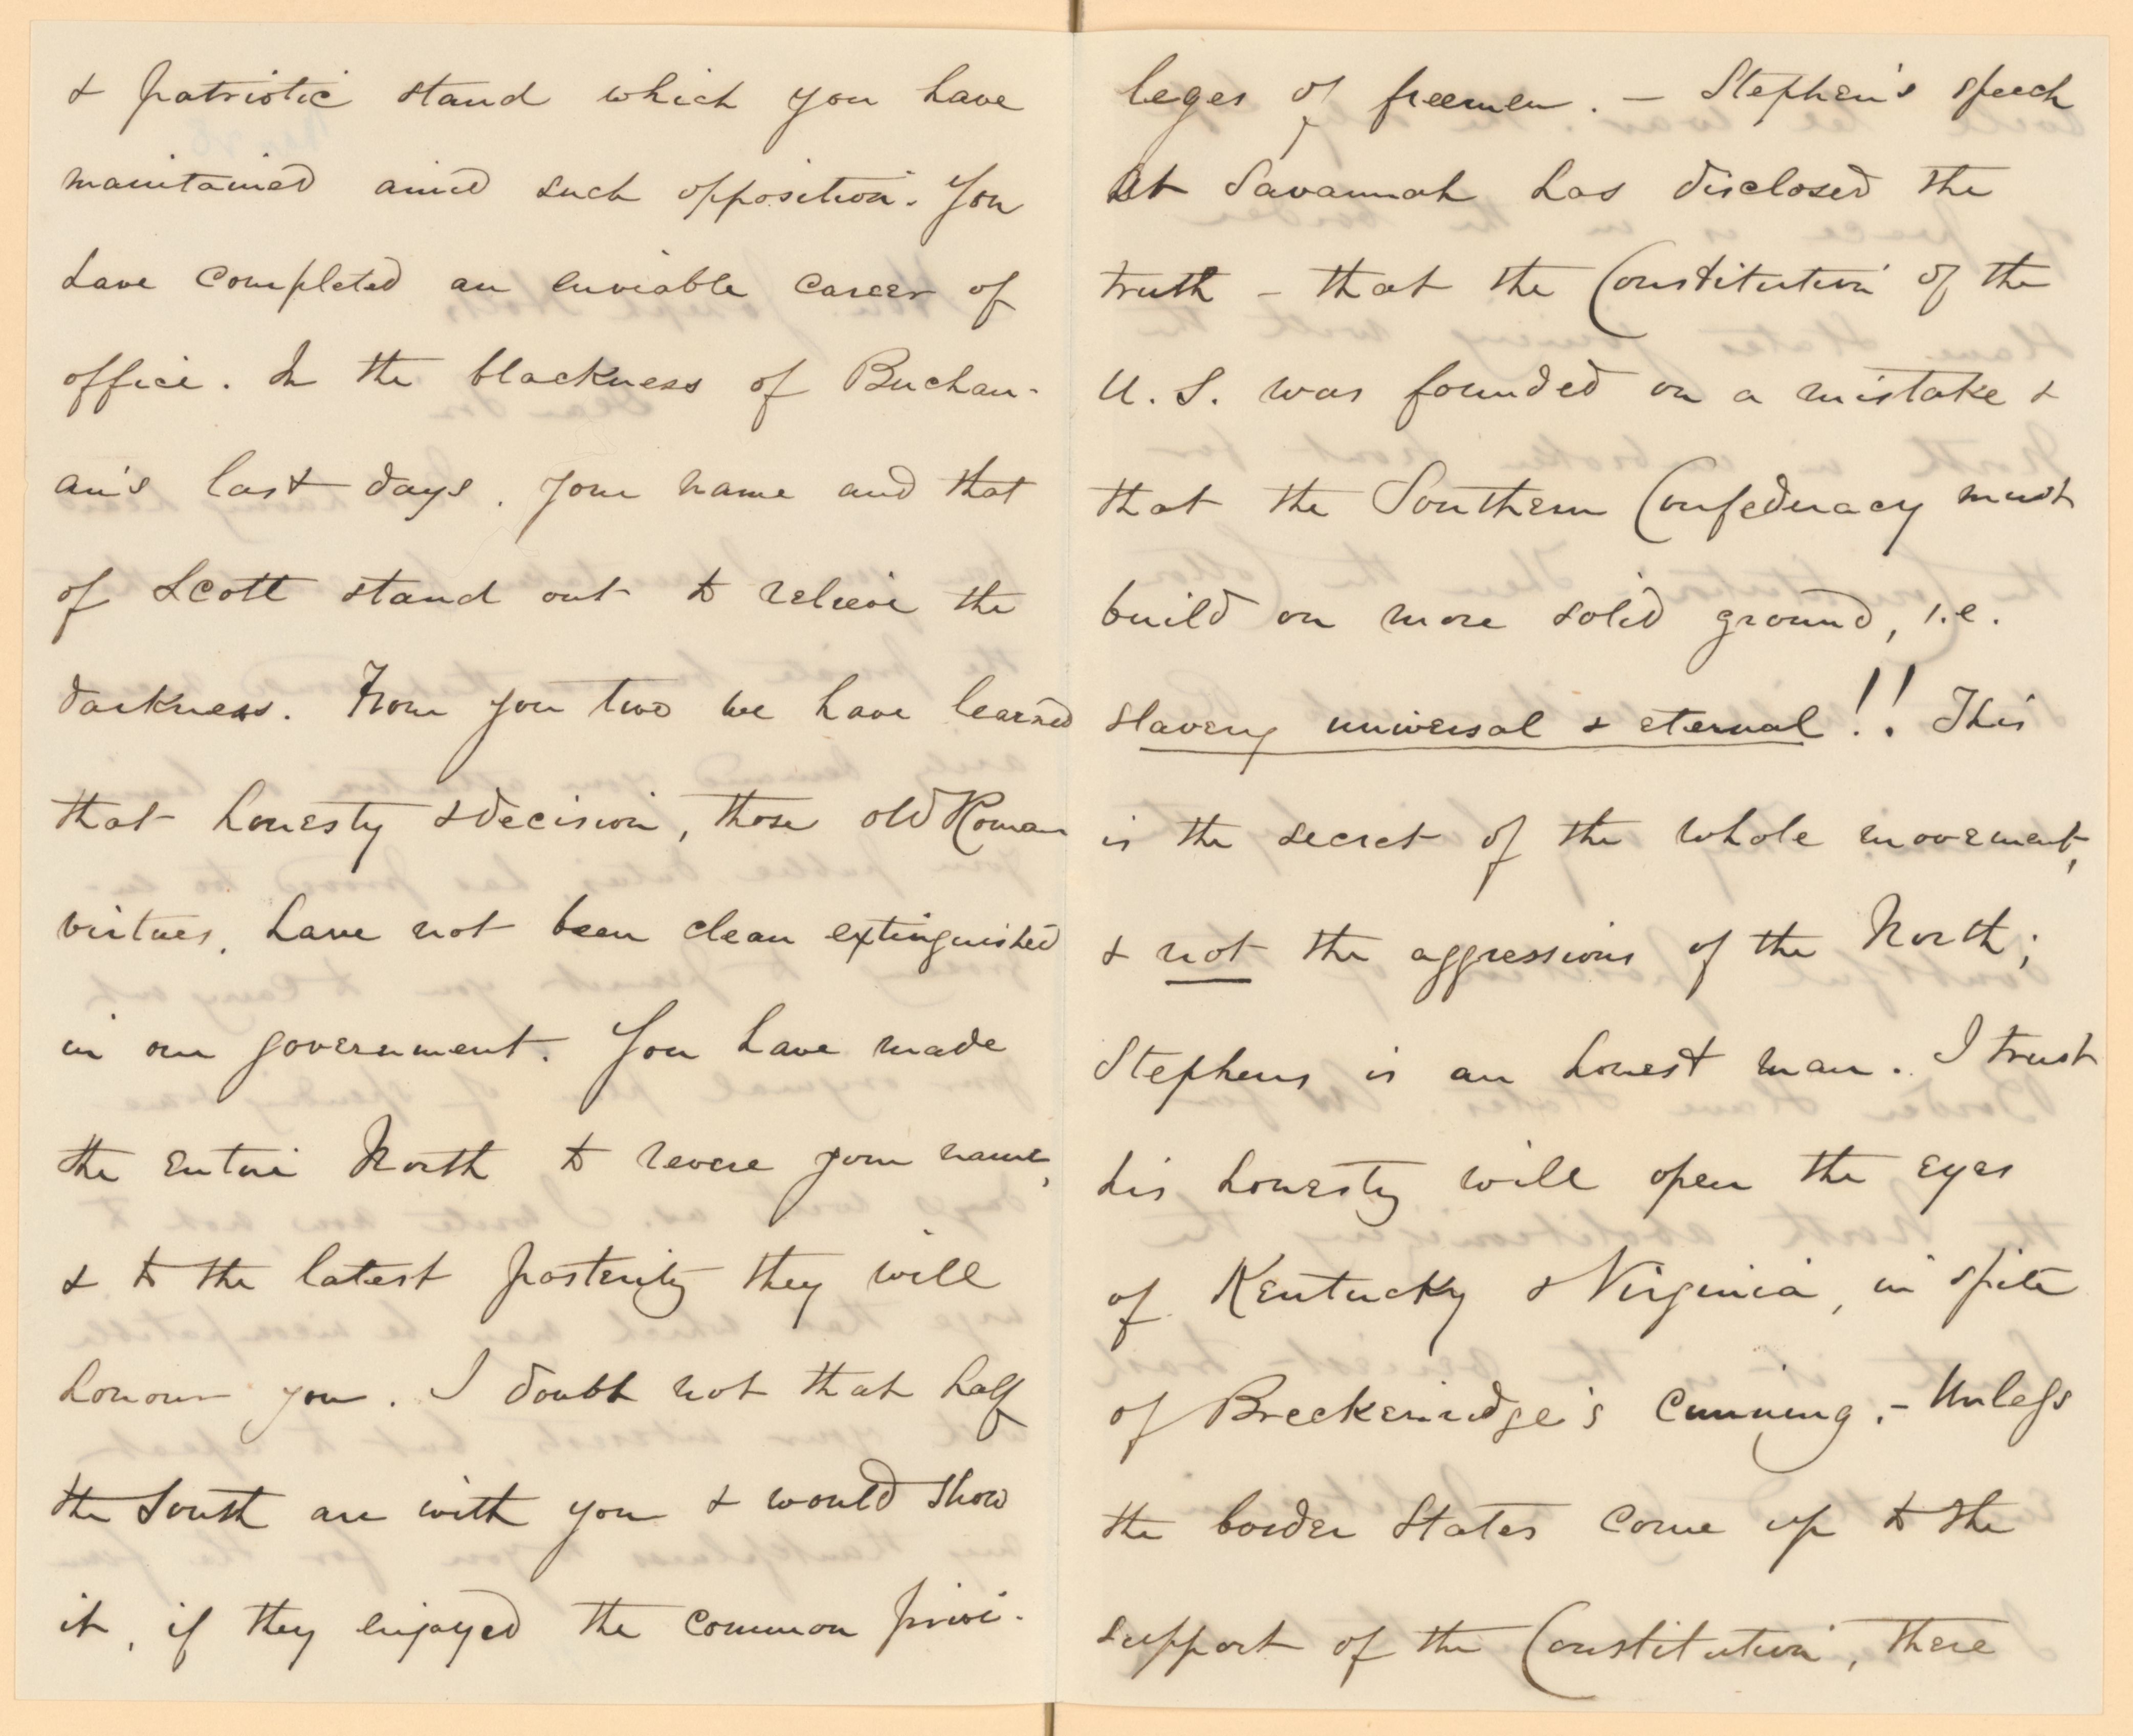 & patriotic stand which you have
maintained amid such opposition. You
have completed an enviable career of
office. In the blackness of Buchan-
an's last days. your name and that
of Scott stand out to relieve the
darkness. From you two we have learned
that honesty & decision, those old Roman
virtues, have not been clean extinguished
in our government. You have made
the entire North to revere your name,
& to the latest posterity they will
honour you. I doubt not that half
the South are with you & would show
it, if they enjoyed the common privi-
leges of freemen. – Stephen's speech
at Savannah has disclosed the
truth – that the Constitution of the
U. S. was founded on a mistake &
that the Southern Confederacy must
build on more solid ground, i.e.
slavery universal & eternal!! This
is the secret of the whole movement,
& not the aggressions of the North;
Stephens is an honest man. I trust
his honesty will open the eyes
of Kentucky & Virginia, in spite
of Breckenridge's cunning. – Unless
the border States come up to the
support of the Constitution, there